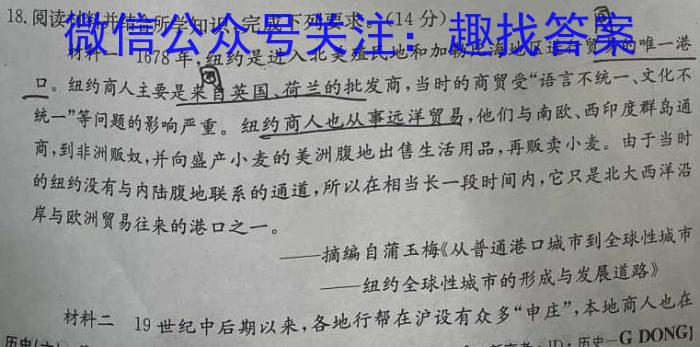 18.阅读材料并结合所学知识,完成下列要求。(14 分)
微信公众号关注:趣找答案
材料一 1678 年,纽约是进入北美殖民地和加勒比海地区进行贸易的唯一港
口。纽约商人主要是来自英国、荷兰的批发商,当时的商贸受“语言不统一、文化不
统一”等问题的影响严重。纽约商人也从事远洋贸易,他们与南欧、西印度群岛通
商,到非洲贩奴,并向盛产小麦的美洲腹地出售生活用品,再贩卖小麦。由于当时
的纽约没有与内陆腹地联系的通道,所以在相当长一段时间内,它只是北大西洋沿
岸与欧洲贸易往来的港口之一。
——摘编自蒲玉梅《从普通港口城市到全球性城市
——纽约全球性城市的形成与发展道路》
材料二 19 世纪中后期以来,各地行帮在沪设有众多“申庄”,本地商人也在
历史 ID:历史—G DONG]